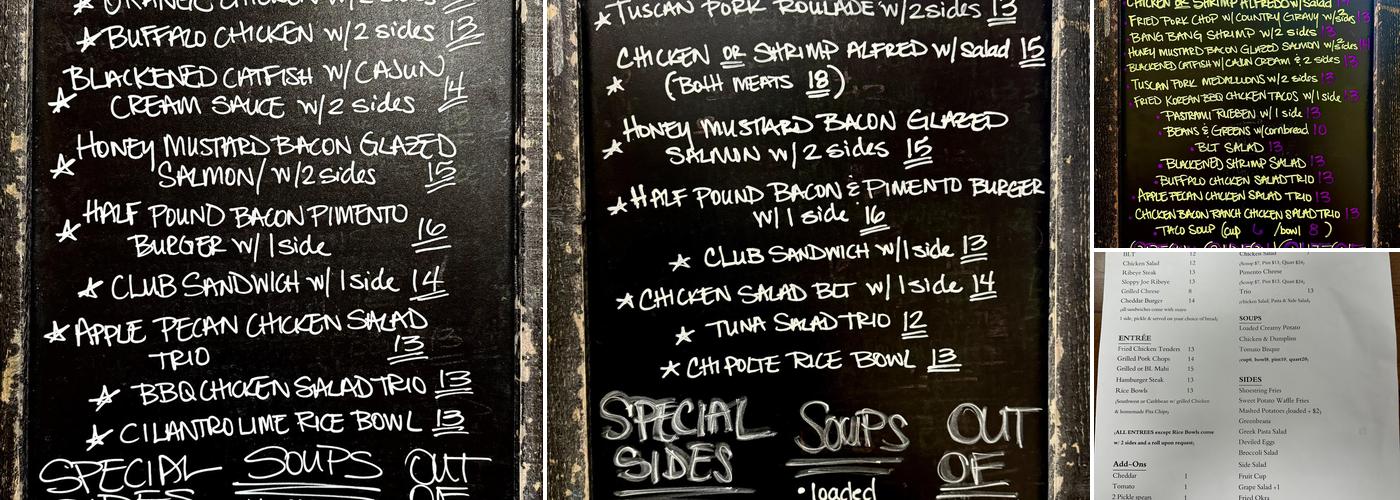 ORANGE CHICKEN w/2 sides 13
BUFFALO CHICKEN w/2 sides 13
BLACKENED CATFISH W/ CAJUN
CREAM SAUCE w/2 sides 14
HONEY MUSTARD BACON GLAZED
SALMON/ w/2 sides 15
HALF POUND BACON PIMENTO
BURGER w/ 1 side 16
CLUB SANDWICH w/ 1 side 14
APPLE PECAN CHICKEN SALAD
TRIO 13
BBQ CHICKEN SALAD TRIO 13
CILANTRO LIME RICE BOWL 13
SPECIAL SOUPS OUT
SIDES OF
TUSCAN PORK ROULADE w/2 sides 13
CHICKEN OR SHRIMP ALFRED w/ Salad 15
(BOTH MEATS 18)
HONEY MUSTARD BACON GLAZED
SALMON w/2 sides 15
HALF POUND BACON & PIMENTO BURGER
w/ 1 side 16
CLUB SANDWICH w/ 1 side 13
CHICKEN SALAD BLT w/ 1 side 14
TUNA SALAD TRIO 12
CHIPOLTE RICE BOWL 13
SPECIAL SOUPS OUT
SIDES OF
• loaded
CHICKEN OR SHRIMP ALFREDO w/ Salad
FRIED PORK CHOP W/ COUNTRY GRAVY w/2 sides 13
BANG BANG SHRIMP w/ 2 sides 13
HONEY MUSTARD BACON GLAZED SALMON w/2 sides
BLACKENED CATFISH W/ CAJUN CREAM & 2 sides 13
TUSCAN PORK MEDALLIONS w/2 sides 13
FRIED KOREAN BBQ CHICKEN TACOS w/ 1 side 13
PASTRAMI RUEBEN w/ 1 side 13
BEANS & GREENS w/cornbread 10
BLT SALAD 13
BLACKENED SHRIMP SALAD 13
BUFFALO CHICKEN SALAD TRIO 13
APPLE PECAN CHICKEN SALAD TRIO 13
CHICKEN BACON RANCH CHICKEN SALAD TRIO 13
TACO SOUP (cup 6 /bowl 8)
BLT 12
Chicken Salad 12
Ribeye Steak 13
Sloppy Joe Ribeye 13
Grilled Cheese 8
Cheddar Burger 14
(all sandwiches come with mayo
1 side, pickle & served on your choice of bread)
ENTRÉE
Fried Chicken Tenders 13
Grilled Pork Chops 14
Grilled or Bl. Mahi 15
Hamburger Steak 13
Rice Bowls 13
(Southwest or Caribbean w/ grilled Chicken
& homemade Pita Chips)
(ALL ENTREES except Rice Bowls come
w/ 2 sides and a roll upon request)
Add-Ons
Cheddar 1
Tomato 1
2 Pickle spears
Chicken Salad
(Scoop $7, Pint $13, Quart $24)
Pimento Cheese
(Scoop $7, Pint $13, Quart $24)
Trio 13
(chicken Salad, Pasta & Side Salad)
SOUPS
Loaded Creamy Potato
Chicken & Dumplins
Tomato Bisque
(cup6, bowl8, pint10, quart20)
SIDES
Shoestring Fries
Sweet Potato Waffle Fries
Mashed Potatoes (loaded + $2)
Greenbeans
Greek Pasta Salad
Deviled Eggs
Broccoli Salad
Side Salad
Fruit Cup
Grape Salad +1
Fried Okra